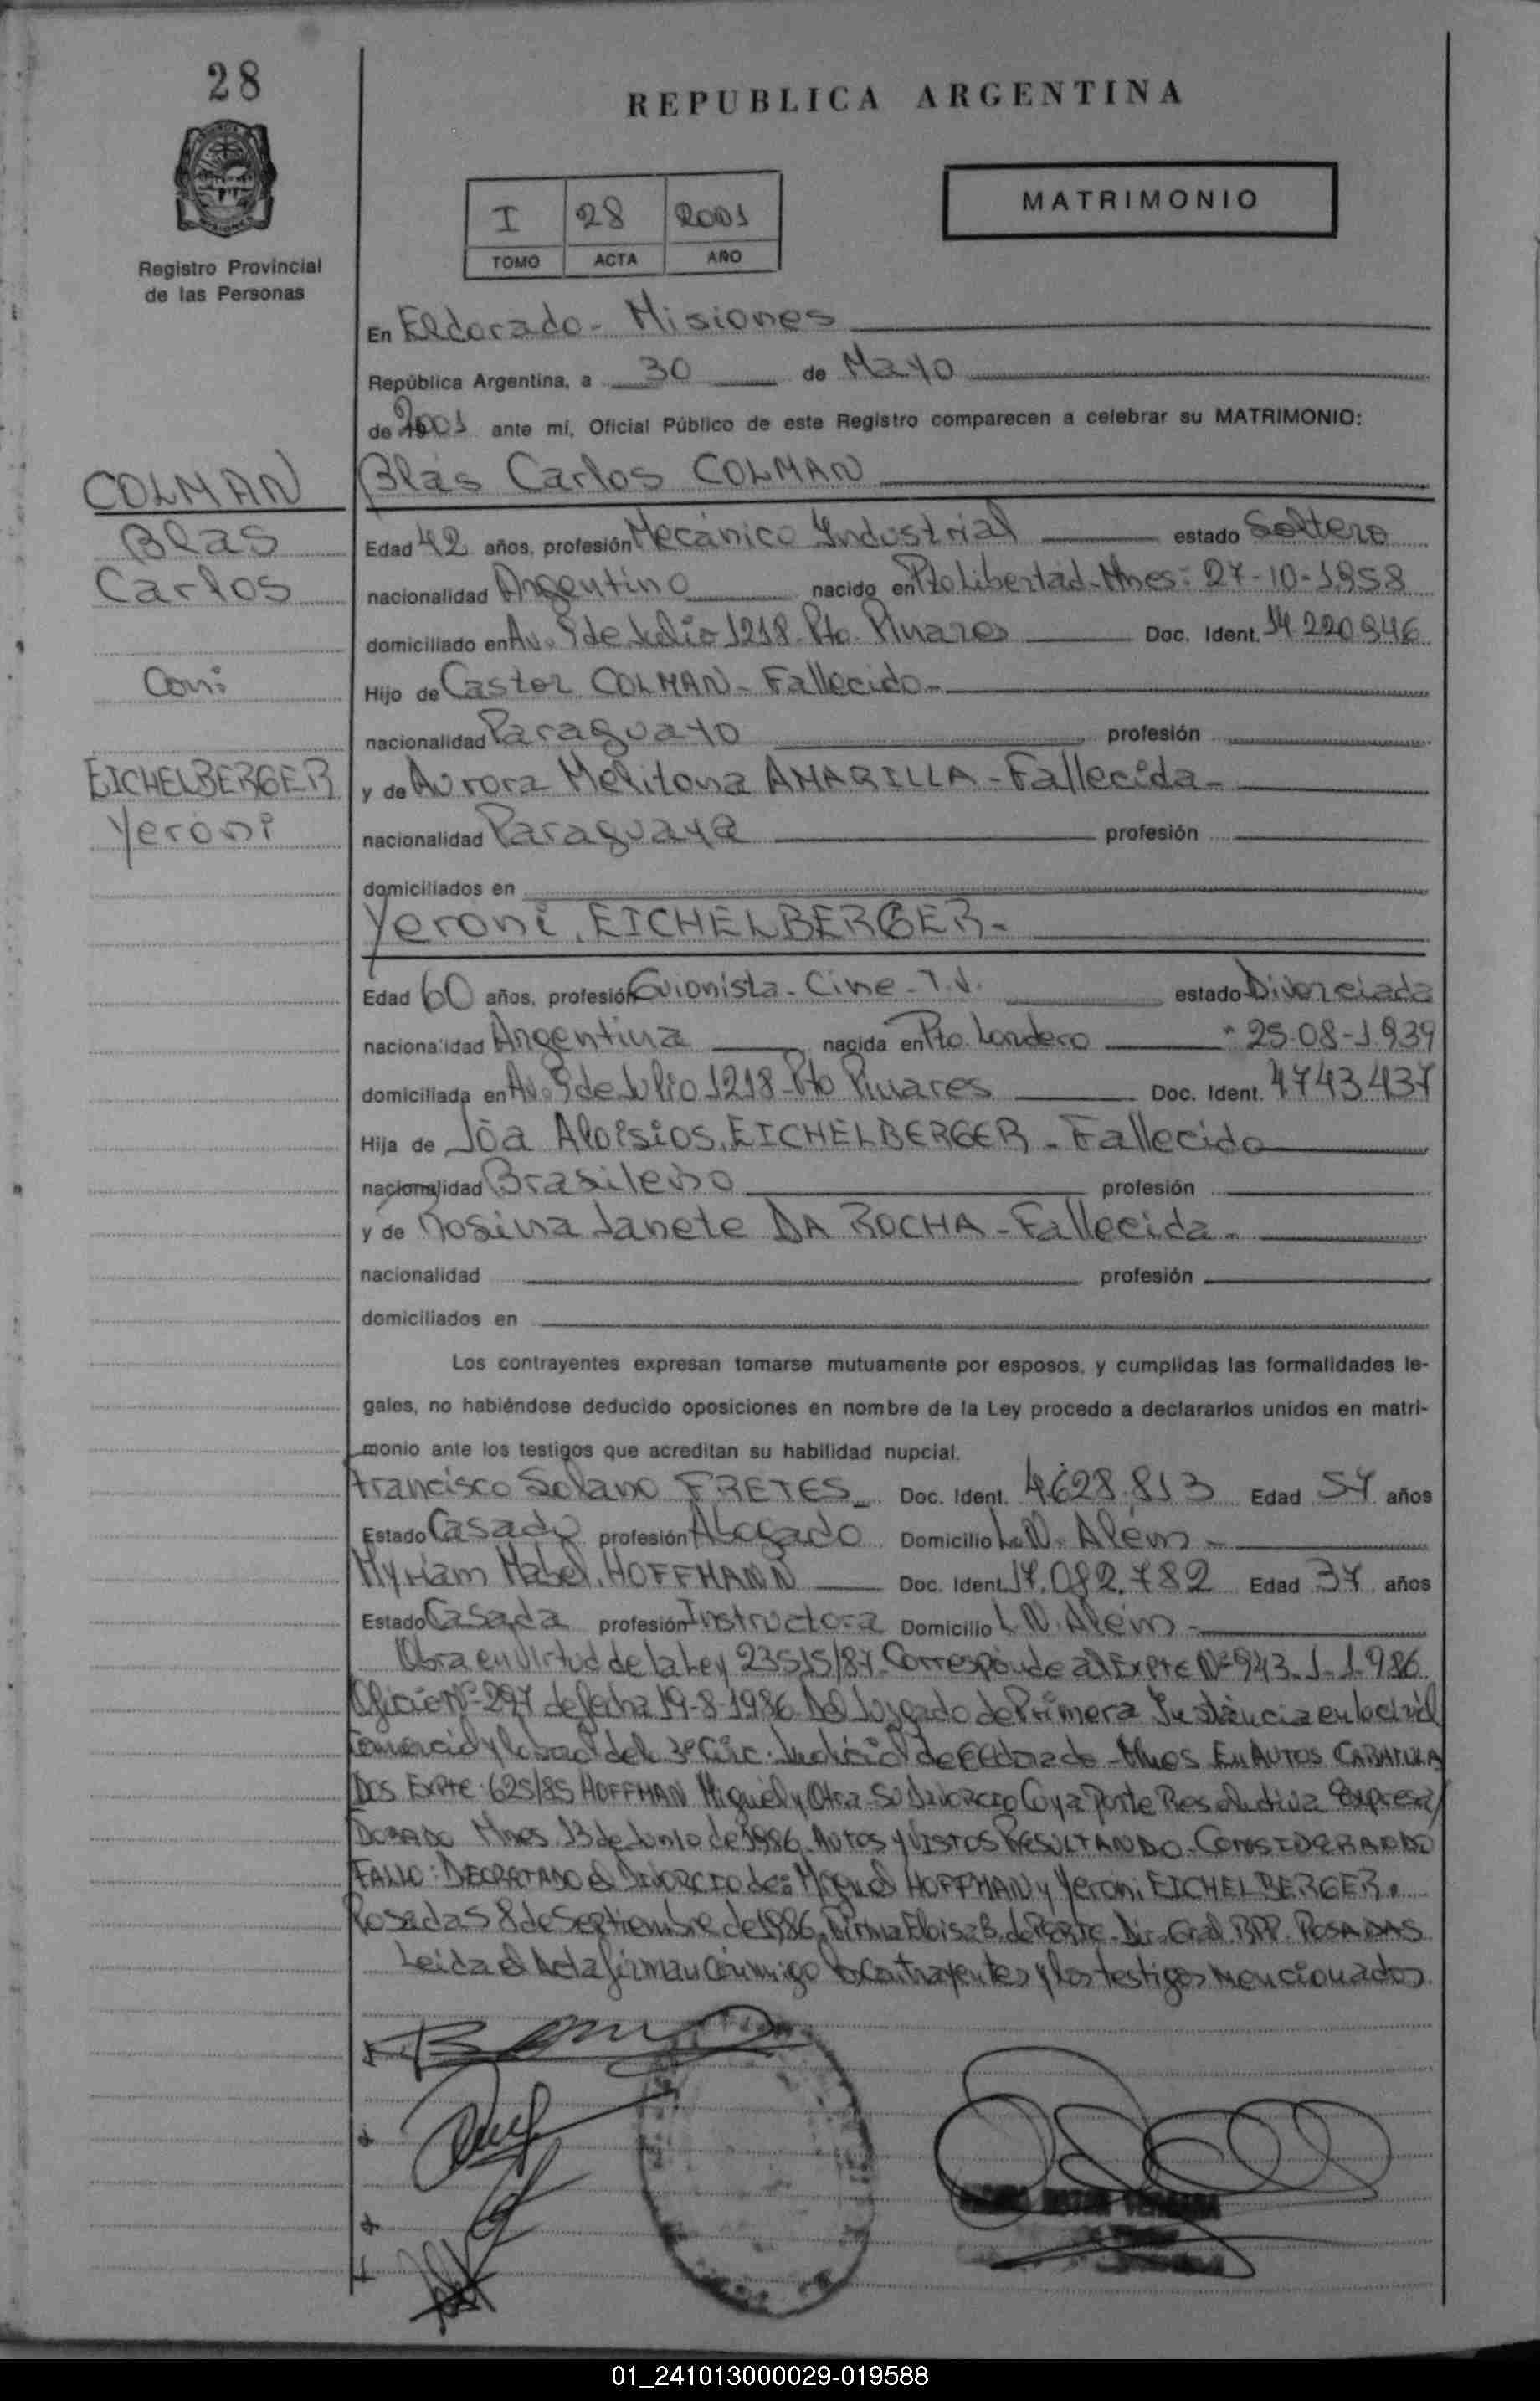 28
REPUBLICA ARGENTINA
MATRIMONIO
I 28 2001
TOMO ACTA AÑO
Registro Provincial
de las Personas
En Eldorado - Misiones
República Argentina, a 30 de Mayo
de 2001 ante mí, Oficial Público de este Registro comparecen a celebrar su MATRIMONIO:
COLMAN
Blas
Carlos
Con:
EICHELBERGER
Yeroni
Blas Carlos COLMAN
Edad 42 años, profesión Mecánico Industrial estado Soltero
nacionalidad Argentino nacido en Pto Libertad - Mnes: 27-10-1958
domiciliado en Av. 9 de Julio 1218 - Pto. Pinares Doc. Ident. 14 220 946
Hijo de Castor COLMAN - Fallecido -
nacionalidad Paraguayo profesión
y de Aurora Melitona AMARILLA - Fallecida -
nacionalidad Paraguaya profesión
domiciliados en
Yeroni EICHELBERGER -
Edad 60 años, profesión Guionista - Cine - T.V. estado Divorciada
nacionalidad Argentina nacida en Pto. Londero - 25-08-1939
domiciliada en Av. 9 de Julio 1218 - Pto Pinares Doc. Ident. 4743437
Hija de Jõa Aloisios EICHELBERGER - Fallecido
nacionalidad Brasileño profesión
y de Rosina Janete DA ROCHA - Fallecida -
nacionalidad profesión
domiciliados en
Los contrayentes expresan tomarse mutuamente por esposos, y cumplidas las formalidades le-
gales, no habiéndose deducido oposiciones en nombre de la Ley procedo a declararlos unidos en matri-
monio ante los testigos que acreditan su habilidad nupcial.
Francisco Solano FRETES - Doc. Ident. 4628.813 Edad 57 años
Estado Casado profesión Abogado Domicilio L.N. Alem -
Myriam Mabel HOFFMANN Doc. Ident. 17.082.782 Edad 37 años
Estado Casada profesión Instructora Domicilio L.N. Alem -
Obra en virtud de la Ley 23515/87 - Corresponde al Expte Nº 943-1-1.986
Oficio Nº 297 de fecha 19-8-1986 Del Juzgado de Primera Instancia en lo civil
Comercial y laboral del 3º Circ. Judicial de Eldorado - Mnes En AUTOS CARATULA
DOS Expte 625/85 HOFFMAN Miguel y Otra S/ Divorcio Cuya parte Resolutiva Expresa/
DORADO Mnes 13 de Junio de 1986. AUTOS Y VISTOS RESULTANDO - CONSIDERANDO
FALLO: DECRETANDO el DIVORCIO de: Miguel HOFFMAN y Yeroni EICHELBERGER.
Posadas 8 de Septiembre de 1986. Firma Eloisa B. de Dir. Gral. RPP. POSADAS
Leida el Acta firman conmigo los Contrayentes y los testigos mencionados
01_241013000029-019588